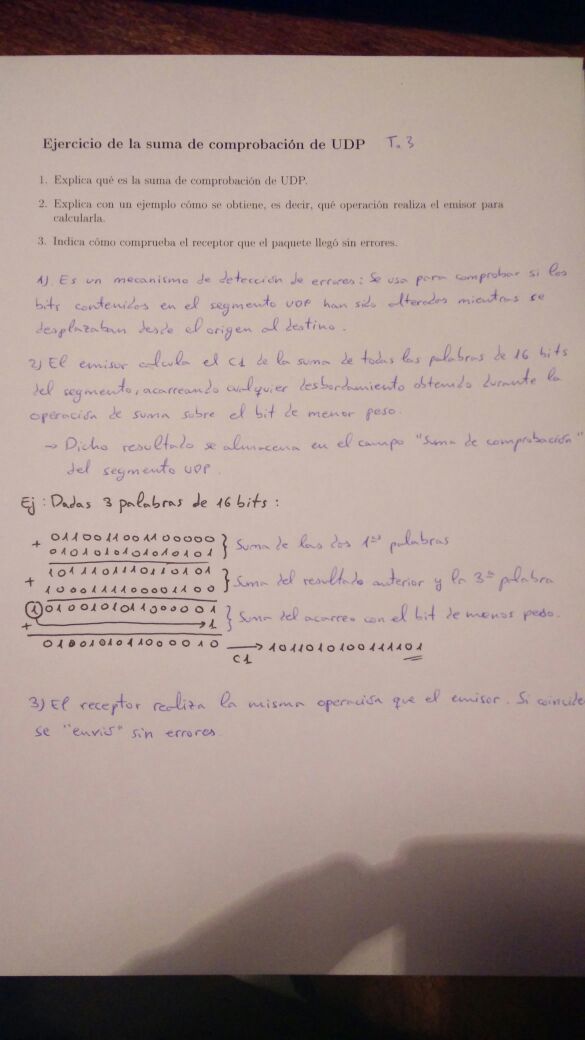 Ejercicio de la suma de comprobación de UDP T. 3
1. Explica qué es la suma de comprobación de UDP.
2. Explica con un ejemplo cómo se obtiene, es decir, qué operación realiza el emisor para
calcularla.
3. Indica cómo comprueba el receptor que el paquete llegó sin errores.
1). Es un mecanismo de detección de errores: Se usa para comprobar si los
bits contenidos en el segmento UDP han sido alterados mientras se
desplazaban desde el origen al destino.
2) El emisor calcula el C1 de la suma de todas las palabras de 16 bits
del segmento, acarreando cualquier desbordamiento obtenido durante la
operación de suma sobre el bit de menor peso.
→ Dicho resultado se almacena en el campo "Suma de comprobación"
del segmento UDP.
Ej: Dadas 3 palabras de 16 bits:
+ 0110011001100000
0101010101010101 } Suma de las dos 1ªˢ palabras
1011101110110101
+ 1000111100001100 } Suma del resultado anterior y la 3ª palabra
1 0100101011000001
+ 1 } Suma del acarreo con el bit de menos peso.
0100101011000010 → C1 1011010100111101
3) El receptor realiza la misma operación que el emisor. Si coincide
se "envió" sin errores.